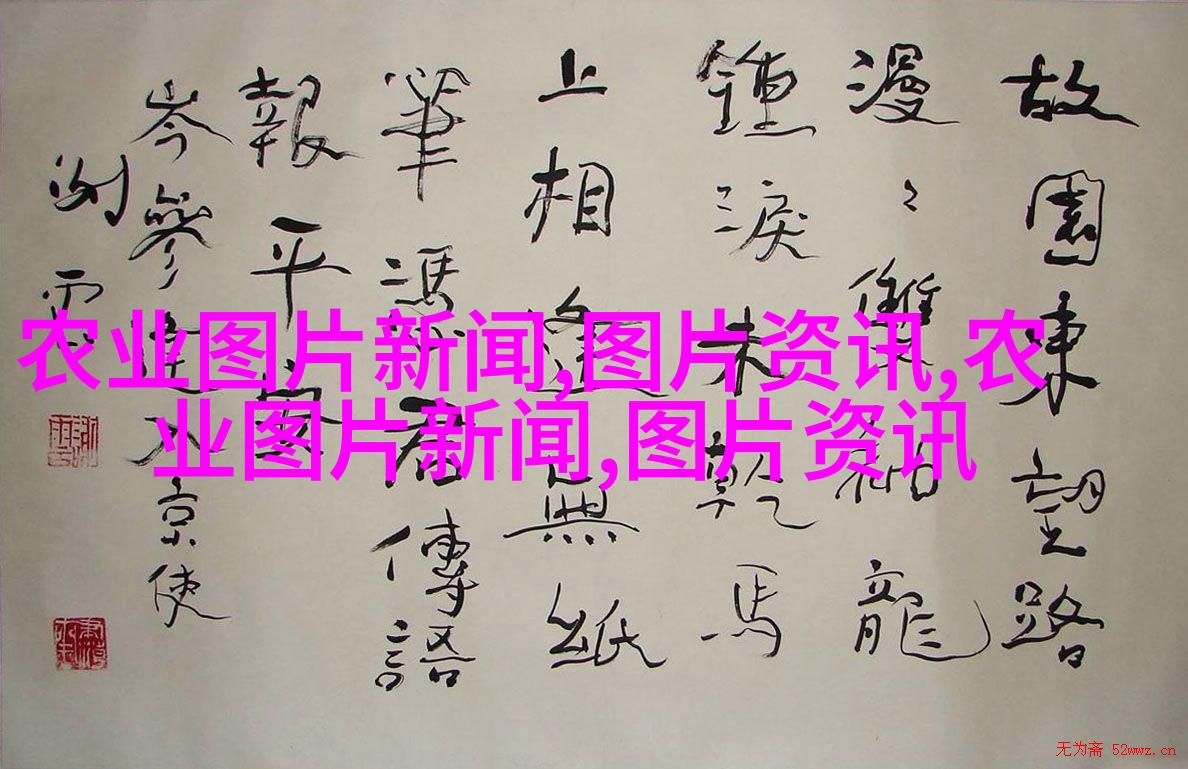 故園東望路
漫々雙袖龍
鍾淚未乾馬
上相逢無紙
筆憑君傳語
報平安
岑參逢入京使
农业图片新闻,图片资讯,农
业图片新闻,图片资讯
无为斋 52wwz.cn